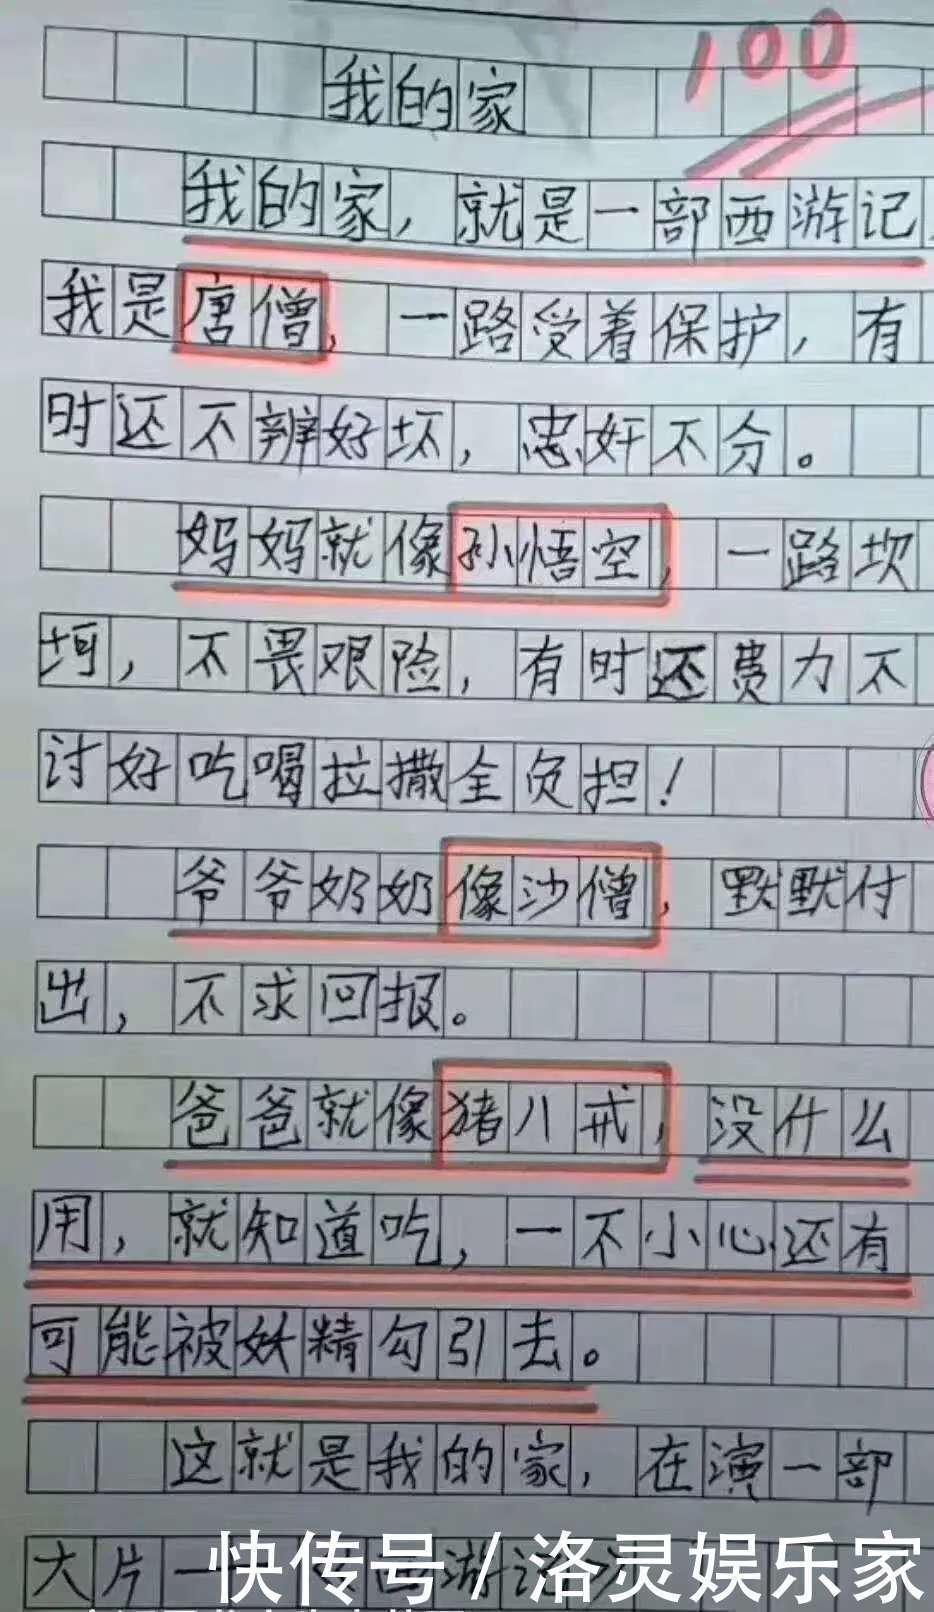 100
我的家
我的家，就是一部西游记
我是唐僧，一路受着保护，有
时还不辨好坏，忠奸不分。
妈妈就像孙悟空，一路坎
坷，不畏艰险，有时还费力不
讨好吃喝拉撒全负担！
爷爷奶奶像沙僧，默默付
出，不求回报。
爸爸就像猪八戒，没什么
用，就知道吃，一不小心还有
可能被妖精勾引去。
这就是我的家，在演一部
大片一
快传号 / 洛灵娱乐家